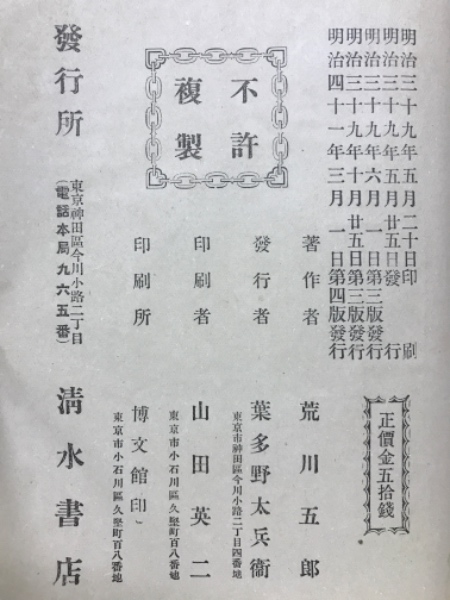 明治三十九年五月二十日印刷
明治三十九年五月廿五日發行
明治三十九年六月一日第三版發行
明治三十九年十月廿五日第三版發行
明治四十一年三月一日第四版發行
正價金五拾錢
不許
複製
著作者 荒川五郎
發行者 葉多野太兵衞
東京市神田區今川小路二丁目四番地
印刷者 山田英二
東京市小石川區久堅町百八番地
印刷所 博文館印
東京市小石川區久堅町百八番地
發行所 淸水書店
東京神田區今川小路二丁目
(電話本局九六五番)